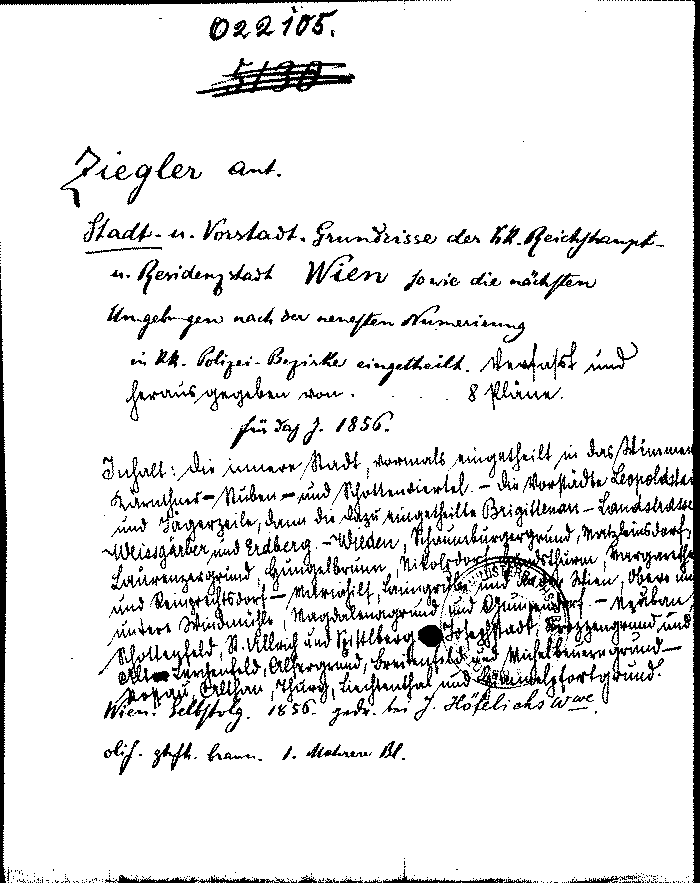 022105.
5130
Ziegler Ant.
Stadt- u. Vorstadt-Grundrisse der kk. Reichshaupt-
u. Residenzstadt Wien sowie die nächsten
Umgebungen nach der neuesten Numerierung
in kk. Polizei-Bezirke eingetheilt. Verfasst und
herausgegeben von . . . . 8 Pläne.
für das J. 1856.
Inhalt: Die innere Stadt, vormals eingetheilt in das Wimmer
Kärnthner- Stuben- und Schottenviertel. - die Vorstädte Leopoldstad
und Jägerzeile, dann die dazu eingetheilte Brigittenau - Landstrasse
Weissgärber und Erdberg. - Wieden, Schaumburgergrund, Matzleinsdorf,
Laurenzergrund, Hungelbrunn, Nikolsdorf, Hundsthurm, Margarethe
und Reinprechtsdorf - Mariahilf, Laimgrube und an der Wien, Obere un
untere Windmühle, Magdalenagrund und Gumpendorf. - Neubau
Schottenfeld, St. Ulrich und Spittlberg - Josephstadt, Strozzengrund und
Alt-Lerchenfeld, Alsergrund, Breitenfeld und Michelbeuerngrund -
Rossau, Althan, Thury, Liechtenthal und Himmelpfortgrund.
Wien. Selbstvlg. 1856. gedr. bei J. Höfelichs Wwe.
br. 1. Mehrere Bl.